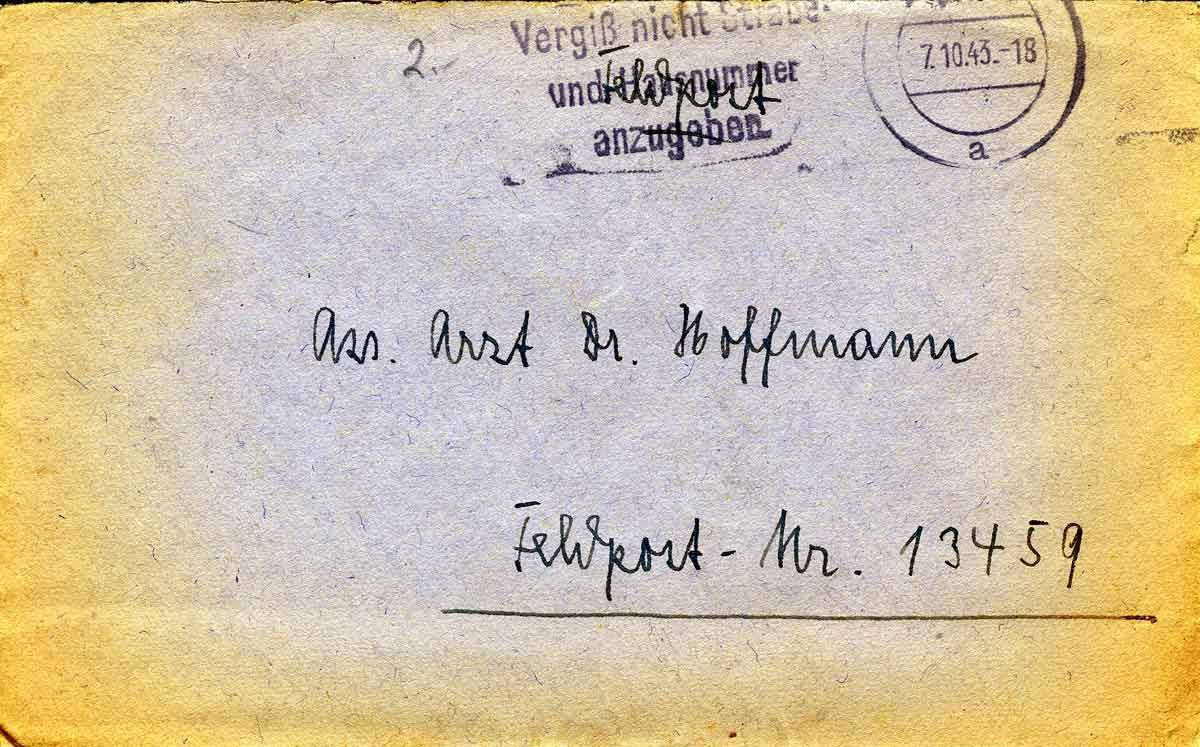 2.-
Vergiß nicht Straße
und Hausnummer
anzugeben
Feldpost
7.10.43.-18
a
Ass. Arzt Dr. Hoffmann
Feldpost-Nr. 13459